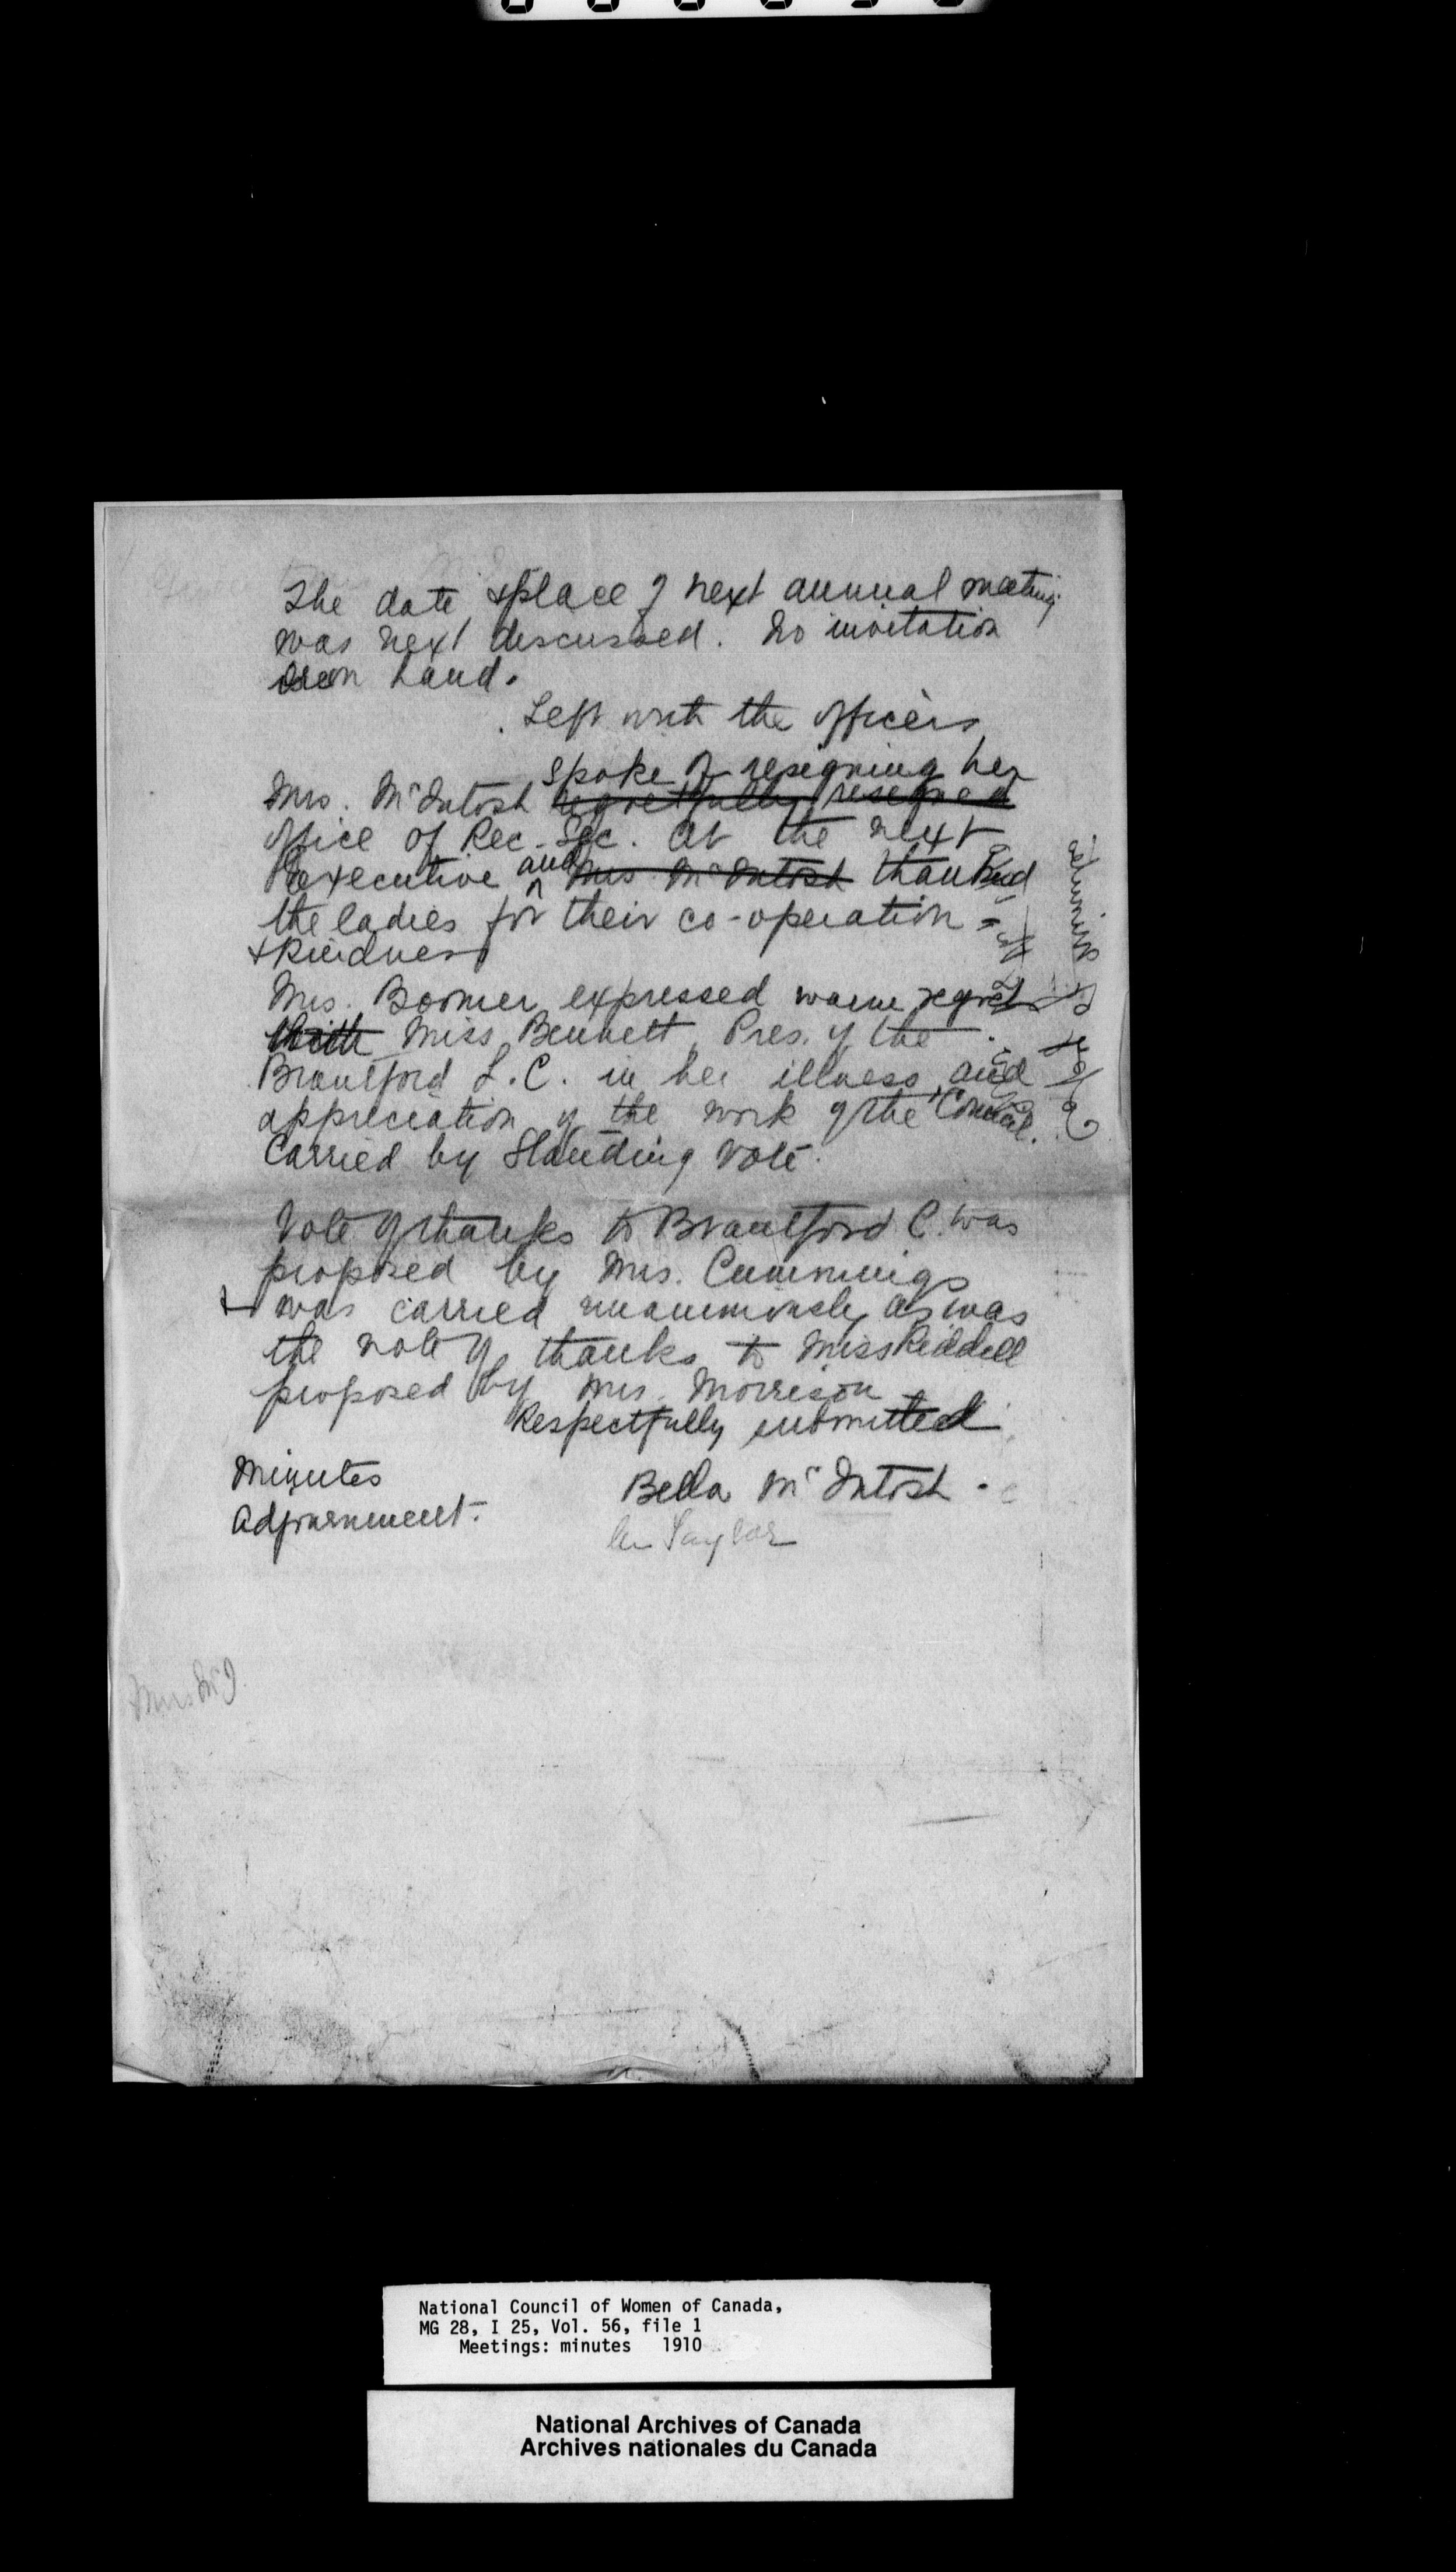 The date & place of next annual meeting
was next discussed. No invitation
on hand.
Left with the officers
spoke of resigning her
Mrs. McIntosh regretfully resigned
office of Rec-Sec. at the next
Executive and Mrs McIntosh thanked
the ladies for their co-operation
& kindness
Mrs. Boomer expressed warm regret
with Miss Bennett, Pres. of the
Brantford L.C. in her illness, and
appreciation of the work of the Council.
Carried by Standing Vote.
Vote of thanks to Brantford C. was
proposed by Mrs. Cummings
& was carried unanimously as was
the vote of thanks to Miss Riddell
proposed by Mrs. Morrison
Respectfully submitted
Minutes
Bella McIntosh.
Adjournment.
Taylor
Mrs McI
Minutes
National Council of Women of Canada,
MG 28, I 25, Vol. 56, file 1
Meetings: minutes 1910
National Archives of Canada
Archives nationales du Canada